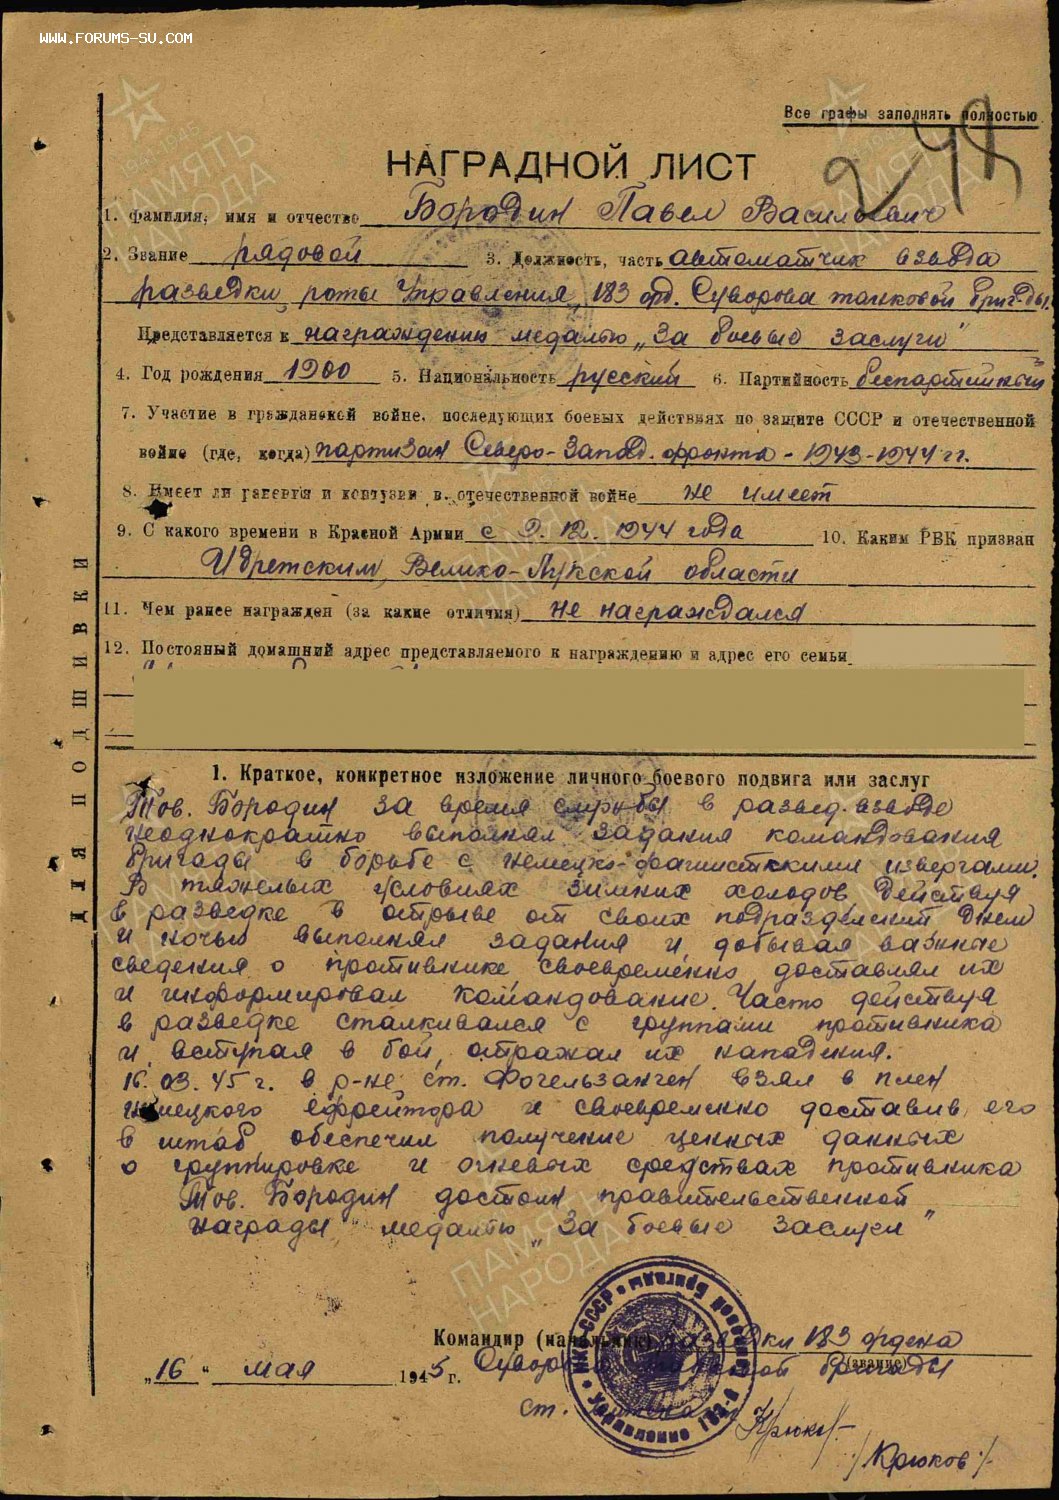 WWW.FORUMS-SU.COM
Все графы заполнять полностью
248
НАГРАДНОЙ ЛИСТ
1. Фамилия, имя и отчество Бородин Павел Васильевич
2. Звание рядовой 3. Должность, часть автоматчик взвода
разведки роты Управления 183 орд. Суворова танковой бриг-ды.
Представляется к награждению медалью „За боевые заслуги"
4. Год рождения 1900 5. Национальность русский 6. Партийность беспартийный
7. Участие в гражданской войне, последующих боевых действиях по защите СССР и отечественной
войне (где, когда) партизан Северо-Запад. фронта - 1943-1944 гг.
8. Имеет ли ранения и контузии в отечественной войне не имеет
9. С какого времени в Красной Армии с 9.12.1944 года 10. Каким РВК призван
Идретским, Велико-Лукской области
11. Чем ранее награжден (за какие отличия) не награждался
12. Постояный домашний адрес представляемого к награждению и адрес его семьи
1. Краткое, конкретное изложение личного боевого подвига или заслуг
Тов. Бородин за время службы в развед. взводе
неоднократно выполнял задания командования
бригады в борьбе с немецко-фашисткими извергами.
В тяжелых условиях зимних холодов действуя
в разведке в отрыве от своих подразделений днем
и ночью выполнял задания и добывая важные
сведения о противнике своевременно доставлял их
и информировал командование. Часто действуя
в разведке сталкивался с группами противника
и, вступая в бой, отражал их нападения.
16.03.45 г. в р-не ст. Фогельзанген взял в плен
немецкого ефрейтора и своевременно доставив его
в штаб обеспечил получение ценных данных
о группировке и огневых средствах противника
Тов. Бородин достоин правительственной
награды медалью „За боевые заслуги"
Командир (начальник) разведки 183 ордена
(звание)
„16" мая 1945 г. Суворова танковой бригады
ст.
Крюков
/Крюков/
ДЛЯ ПОДШИВКИ
НКО-СССР
Управление 183-й танковой бригады
ПАМЯТЬ НАРОДА
1941-1945